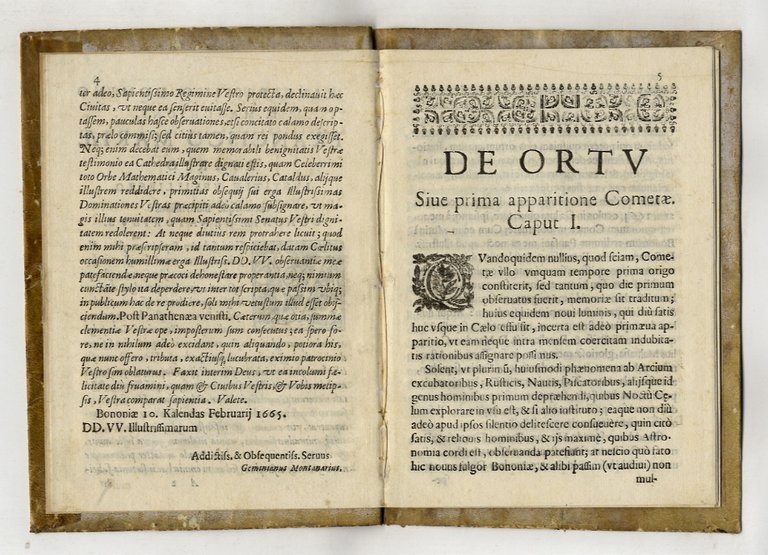 4
tur adeo, Sapientissimo Regimine Vestro protecta, declinavit hæc
Civitas, vt neque ea senserit evitasse. Serius equidem, quam op-
tassem, pauculas hasce observationes, etsi concitato calamo descrip-
tas, prælo commisi; sed citius tamen, quam rei pondus exegisset.
Neq; enim decebat eum, quem memorabili benignitatis Vestræ
testimonio ea Cathedra illustrare dignati estis, quam Celeberrimi
toto Orbe Mathematici Maginus, Cavalerius, Cataldus, alijque
illustrem reddidere, primitias obsequij sui erga Illustrissimas
Dominationes Vestras præcipiti adeo calamo subsignare, vt ma-
gis illius tenuitatem, quam Sapientissimi Senatus Vestri digni-
tatem redolerent: At neque diutius rem protrahere licuit; quod
enim mihi præscripseram, id tantum respiciebat, datam Cœlitus
occasionem humillimæ erga Illustriss. DD. VV. observantiæ meæ
patefaciendæ neque præcoci dehonestare properantia, neq; nimium
cunctāte stylo ita deperdere, vt inter tot scripta, quæ passim vbiq;
in publicum hac de re prodiere, soli mihi vetustum illud esset obij-
ciendum. Post Panathenæa venisti, Cæterum quæ otia, summæ
clementiæ Vestræ ope, imposterum sum consecutus; ea spero fo-
re, ne in nihilum adeò excidant, quin aliquando, potiora his,
quæ nunc offero, tributa, exactius lucubrata, eximio patrocinio
Vestro sim oblaturus. Faxit interim Deus, vt ea incolumi fæ-
licitate diu fruamini, quam & Civibus Vestris, & Vobis metip-
sis, Vestra comparat sapientia. Valete.
Bononiæ 10. Kalendas Februarij 1665.
DD. VV. Illustrissimarum
Addictiss. & Obsequentiss. Servus
Geminianus Montanarius.
5
DE ORTV
Siue prima apparitione Cometæ.
Caput I.
QVandoquidem nullius, quod sciam, Come-
tæ vllo vmquam tempore prima origo
constiterit, sed tantum, quo die primum
observatus fuerit, memoriæ sit traditum;
huius equidem novi luminis, qui diù satis
huc vsque in Cælo effusit, incerta est adeò primæua ap-
paritio, vt eam neque intra mensem coercitam indubita-
tis rationibus assignare possimus.
Solent, vt plurimū, huiusmodi phænomena ab Arcium
excubatoribus, Rusticis, Nautis, Piscatoribus, alijsque id
genus hominibus primum depræhendi, quibus Noctù Cę-
lum explorare in vsu est, & si alio instituto; eaque non diù
adeò apud ipsos silentio delitescere consueuère, quin citò
satis, & reliquis hominibus, & ijs maximè, quibus Astro-
nomia cordi est, observanda patefiant; at nescio quò fato
hic nouus fulgor Bononiæ, & alibi passim (vt audiui) non
mul-